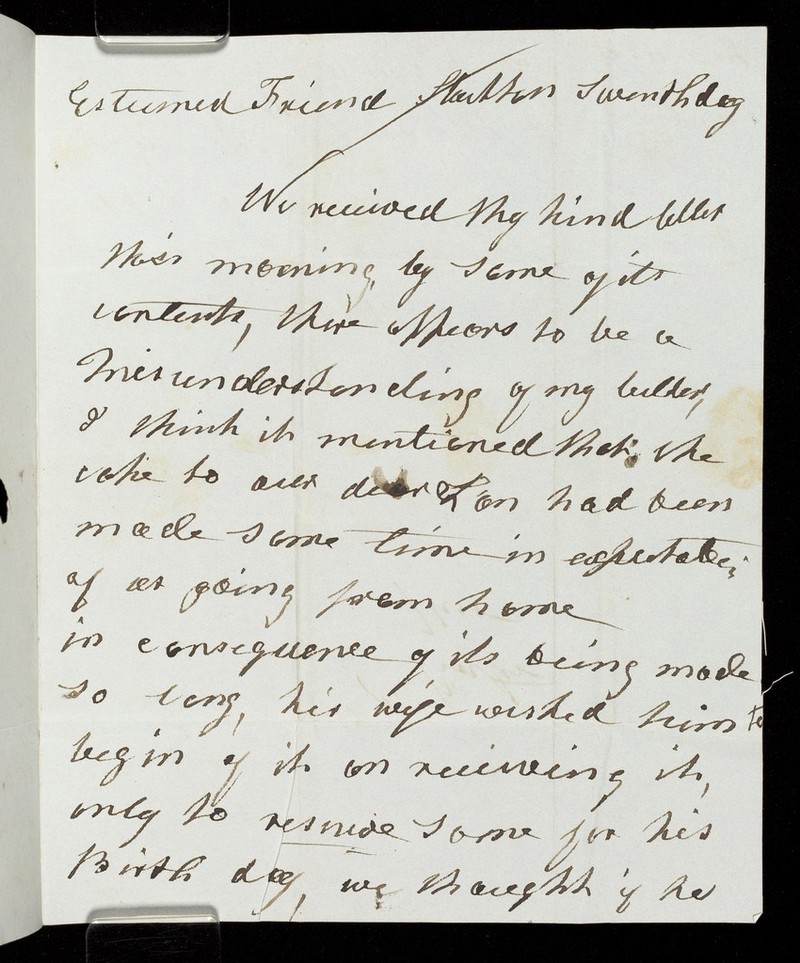 Esteemed Friend Stratton Seventhday
We received thy kind letter
this morning, by some of its
contents, there appears to be a
Misunderstanding of my letter,
I think it mentioned that the
cake to our dear Son had been
made some time in expectation
of as going from home
in consequence of its being made
so long, his wife wished him to
begin of it on receiving it,
only to reserve some for his
Birth day, we thought if he